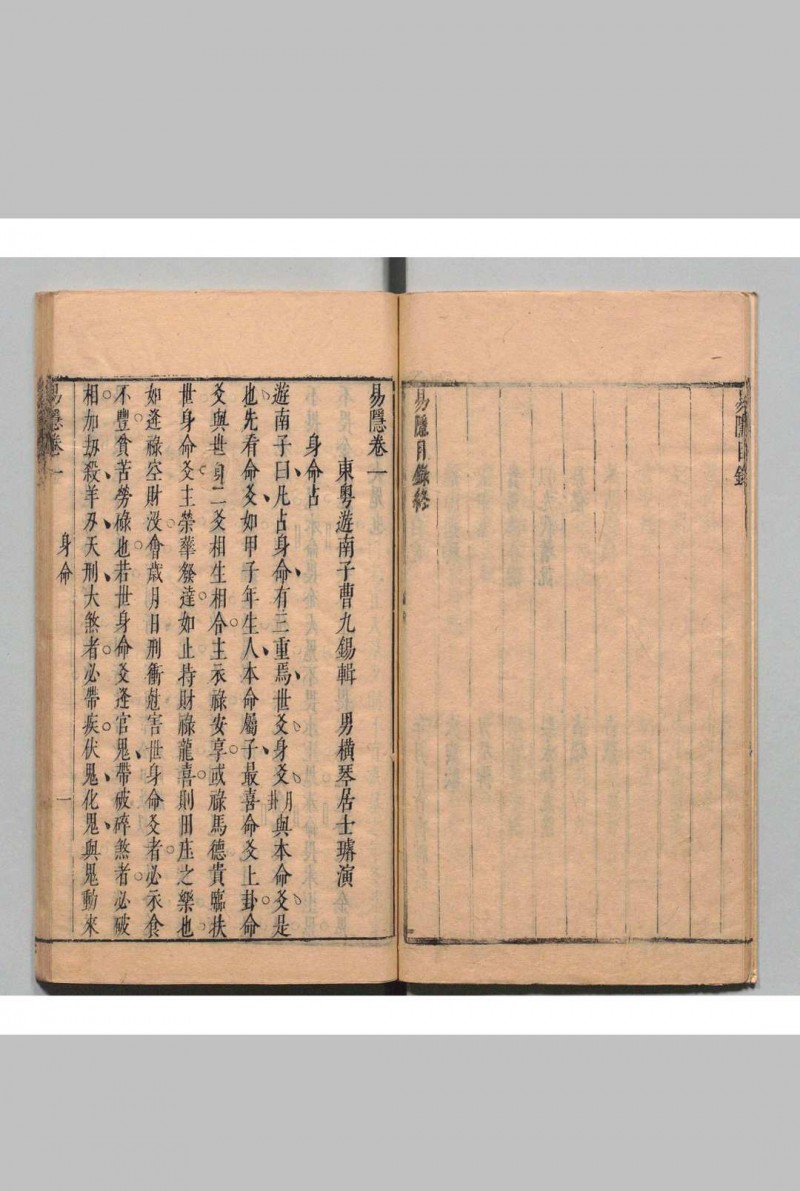 易隱目錄
易隱目錄終
易隱卷一
東粵遊南子曹九錫輯　男橫琴居士璿演
身命占
遊南子曰凡占身命有三重焉世爻身爻月卦與本命爻是
也先看命爻如甲子年生人本命屬子最喜命爻上卦命
爻與世身二爻相生相合主衣祿安享或祿馬德貴臨扶
世身命爻主榮華發達如止持財祿龍喜則田庄之樂也
如逢祿空財沒會歲月日刑衝尅害世身命爻者必衣食
不豐貧苦勞碌也若世身命爻逢官鬼帶破碎煞者必破
相加劫殺羊刃天刑大煞者必帶疾伏鬼化鬼與鬼動來
易隱卷一　身命　一